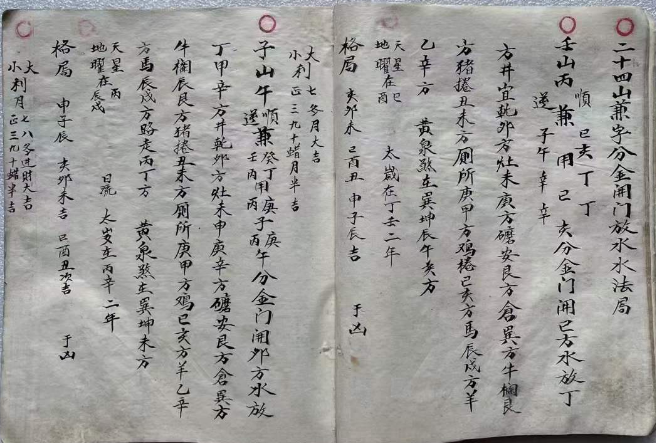 二十四山兼字分金開门放水水法局
壬山丙兼 順 己亥丁丁 逆 子午辛辛 用己亥分金门開巳方水放丁
方井宜乾卯方灶未庚方礳安艮方倉巽方牛欄艮
方猪捲丑未方厠所庚甲方鸡捲己亥方馬辰戍方羊
乙辛方 黄泉煞在巽坤辰午亥方
天星巳
地曜在酉 太歲在丁壬二年
格局 亥卯未 巳酉丑 申子辰吉 于凶
大利 七冬月大吉
小利 正三九十蜡月半吉
子山午兼 順 癸丁用庚子庚午 逆 壬丙 丙丙 分金门開卯方水放
丁甲辛方井乾卯方灶未申庚辛方礳安艮方倉巽方
牛欄辰艮方猪捲丑未方厠所庚甲方鸡巳亥方羊乙辛
方馬辰戍方路走丙丁方 黄泉煞在巽坤未方
天星丙
地曜在辰戍 日流 太岁在丙辛二年
格局 申子辰 亥卯未吉 巳酉丑次吉 于凶
大利月 七八冬进財大吉
小利月 正三九十蜡半吉